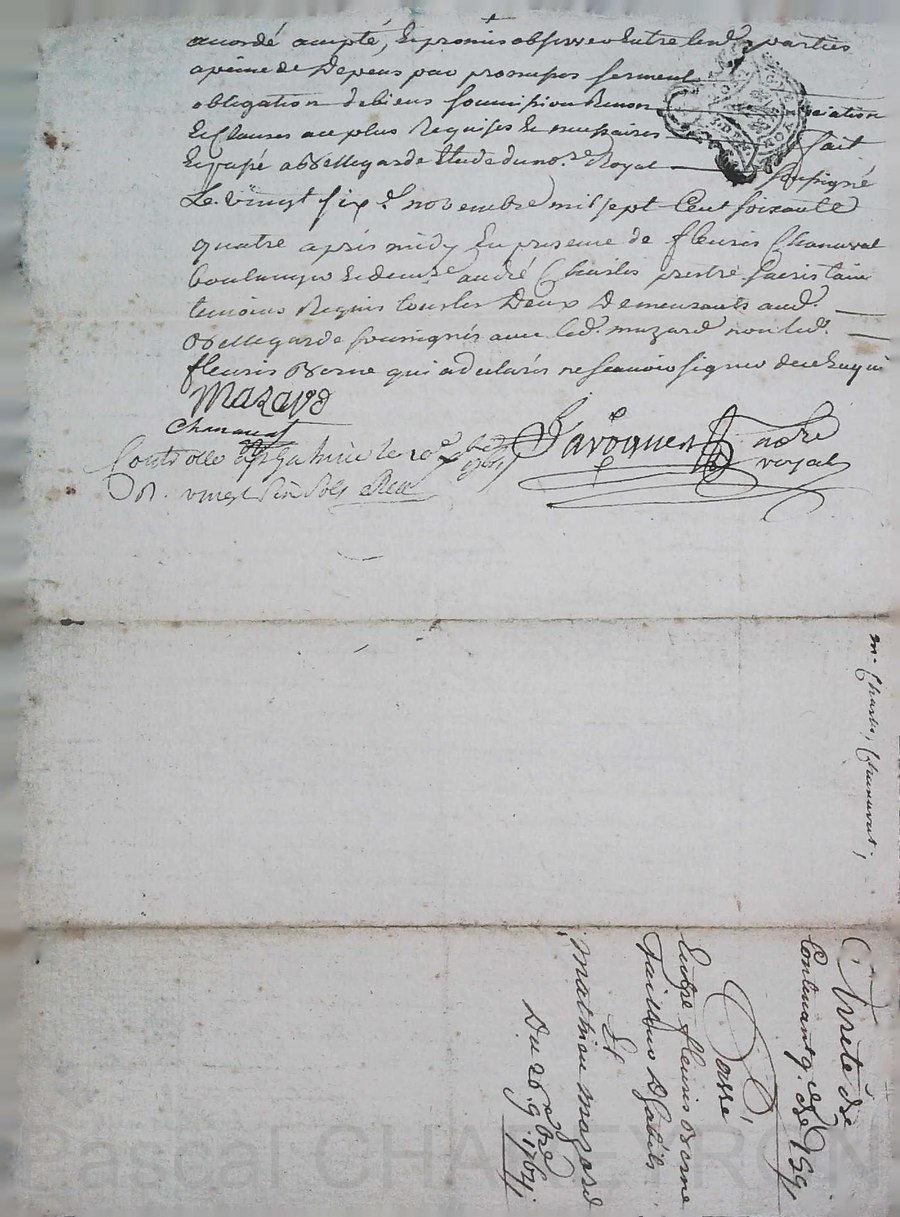 accordé accepté, et promis observer entre lesd. parties
a peine de Depens par promesses serment
obligation de biens soumission Renon ciation
et clauses au plus Requises et necessaires fait
et passé a Bellegarde Etude du nore. Royal soussigné
Le vingt six e. novembre mil sept Cent soixante
quatre après midy En presence de fleuris Chanavat
boulanger et de me andré Charles prestre sacristain
temoins Requis tous les Deux Demeurants aud.
Bellegarde soussignés avec led. mazard non led.
fleuris Berne qui a declaré ne scavoir signer de ce Enquis
Mazard
Chanavat
Javogues nore royal
Controllé a St Galmier le 9bre 1764
R. vingt six sols
mr. Charles, Chanavat,
Arreté de
Contenant q. de 159
Passé
Entre fleuris Berne
Tailleur D'habits
Et
Mathieu mazard
Du 26 9bre 1764
Pascal CHAPEYRON